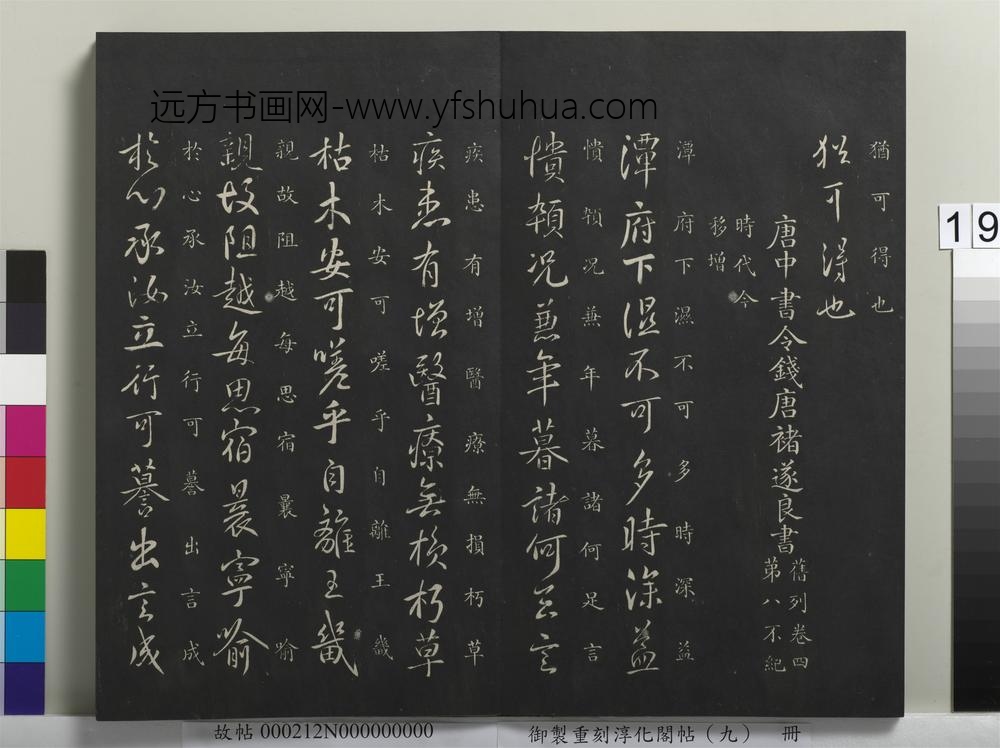 远方书画网-www.yfshuhua.com
猶可得也
猶可得也
唐中書令錢唐褚遂良書
舊列卷四
第八不紀
時代今
移增
潭府下濕不可多時深益
潭府下濕不可多時深益
憒頓况兼年暮諸何足言
憒頓况兼年暮諸何足言
疾患有增醫療無損朽草
疾患有增醫療無損朽草
枯木安可嗟乎自離王畿
枯木安可嗟乎自離王畿
親故阻越每思宿曩寧喻
親故阻越每思宿曩寧喻
於心承汝立行可謩出言成
於心承汝立行可謩出言成
19
故帖 000212N000000000
御製重刻淳化閣帖（九） 冊